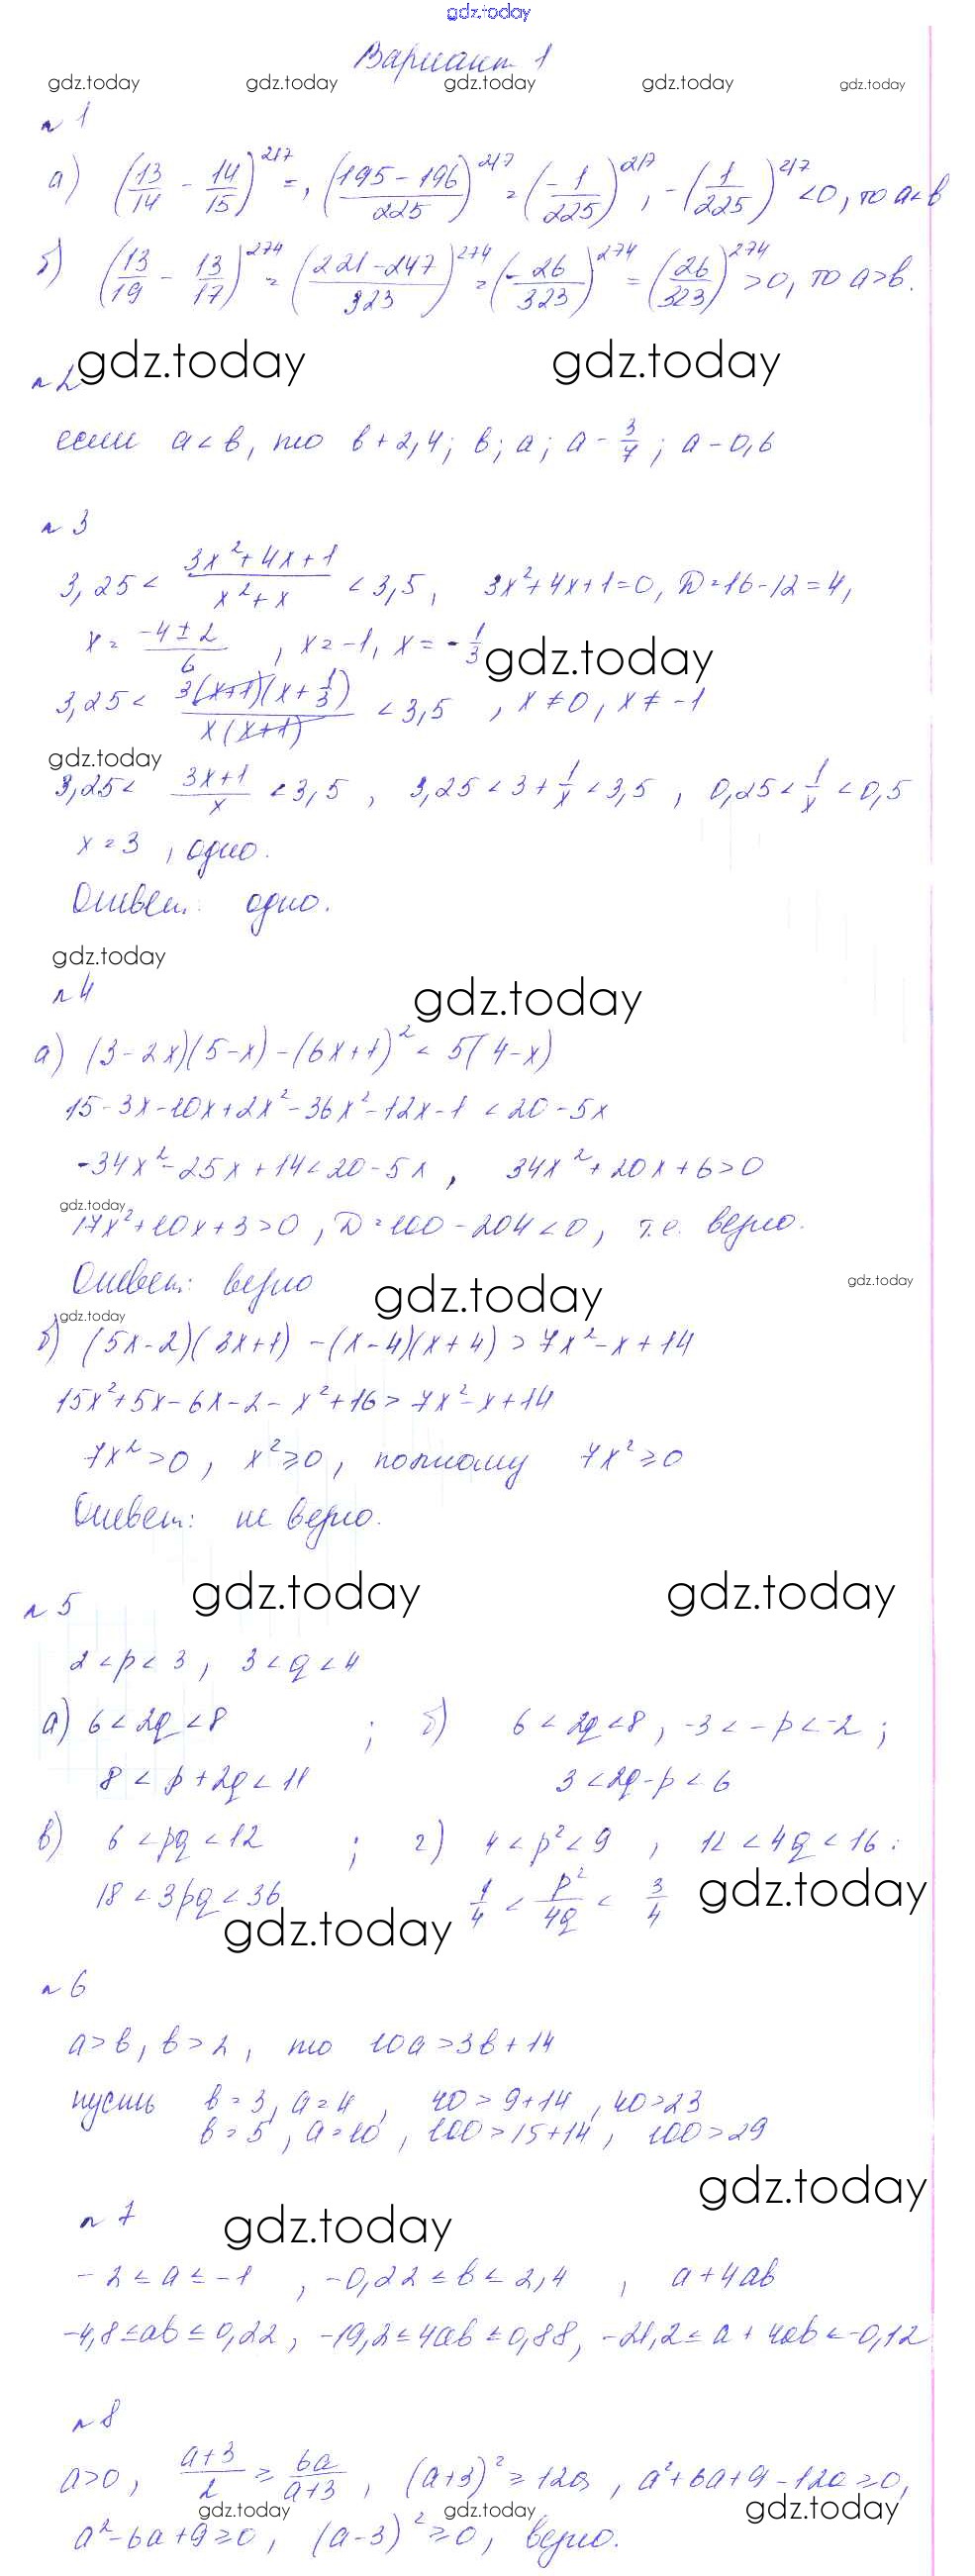 gdz.today
Вариант 1
gdz.today gdz.today gdz.today gdz.today gdz.today
№1
а) (13/14 - 14/15)^217 =, ((195-196)/225)^217 = (-1/225)^217, -(1/225)^217 <0, то a<b
б) (13/19 - 13/17)^274 = ((221-247)/323)^274 = (-26/323)^274 = (26/323)^274 >0, то a>b.
№2
gdz.today gdz.today
если a<b, то b+2,4; b; a; a-3/7; a-0,6
№3
3,25 < (3x²+4x+1)/(x²+x) < 3,5, 3x²+4x+1=0, D=16-12=4,
x = (-4±2)/6, x=-1, x=-1/3
gdz.today
3,25 < 3(x+1)(x+1/3)/(x(x+1)) < 3,5, x≠0, x≠-1
gdz.today
3,25 < (3x+1)/x < 3,5, 3,25 < 3+1/x < 3,5, 0,25 < 1/x < 0,5
x=3, одно.
Ответ: одно.
gdz.today
№4
gdz.today
а) (3-2x)(5-x)-(6x+1)² < 5(4-x)
15-3x-10x+2x²-36x²-12x-1 < 20-5x
-34x²-25x+14<20-5x, 34x²+20x+6>0
gdz.today
17x²+10x+3>0, D=100-204<0, т.е. верно.
Ответ: верно
gdz.today gdz.today
gdz.today
б) (5x-2)(3x+1)-(x-4)(x+4) > 7x²-x+14
15x²+5x-6x-2-x²+16 > 7x²-x+14
7x²>0, x²≥0, поэтому 7x²≥0
Ответ: не верно.
gdz.today gdz.today
№5
2<p<3, 3<q<4
а) 6<2q<8; б) 6<2q<8, -3<-p<-2;
8<p+2q<11 3<2q-p<6
в) 6<pq<12; г) 4<p²<9, 12<4q<16:
18<3pq<36 1/4 < p²/4q < 3/4
gdz.today gdz.today
№6
a>b, b>2, то 10a>3b+14
пусть b=3, a=4, 40>9+14, 40>23
b=5, a=10, 100>15+14, 100>29
gdz.today
№7
gdz.today
-2≤a≤-1, -0,22≤b≤2,4, a+4ab
-4,8≤ab≤0,22, -19,2≤4ab≤0,88, -21,2≤a+4ab<-0,12
№8
a>0, (a+3)/2 ≥ 6a/(a+3), (a+3)²≥12a, a²+6a+9-12a≥0,
gdz.today gdz.today gdz.today
a²-6a+9≥0, (a-3)²≥0, верно.